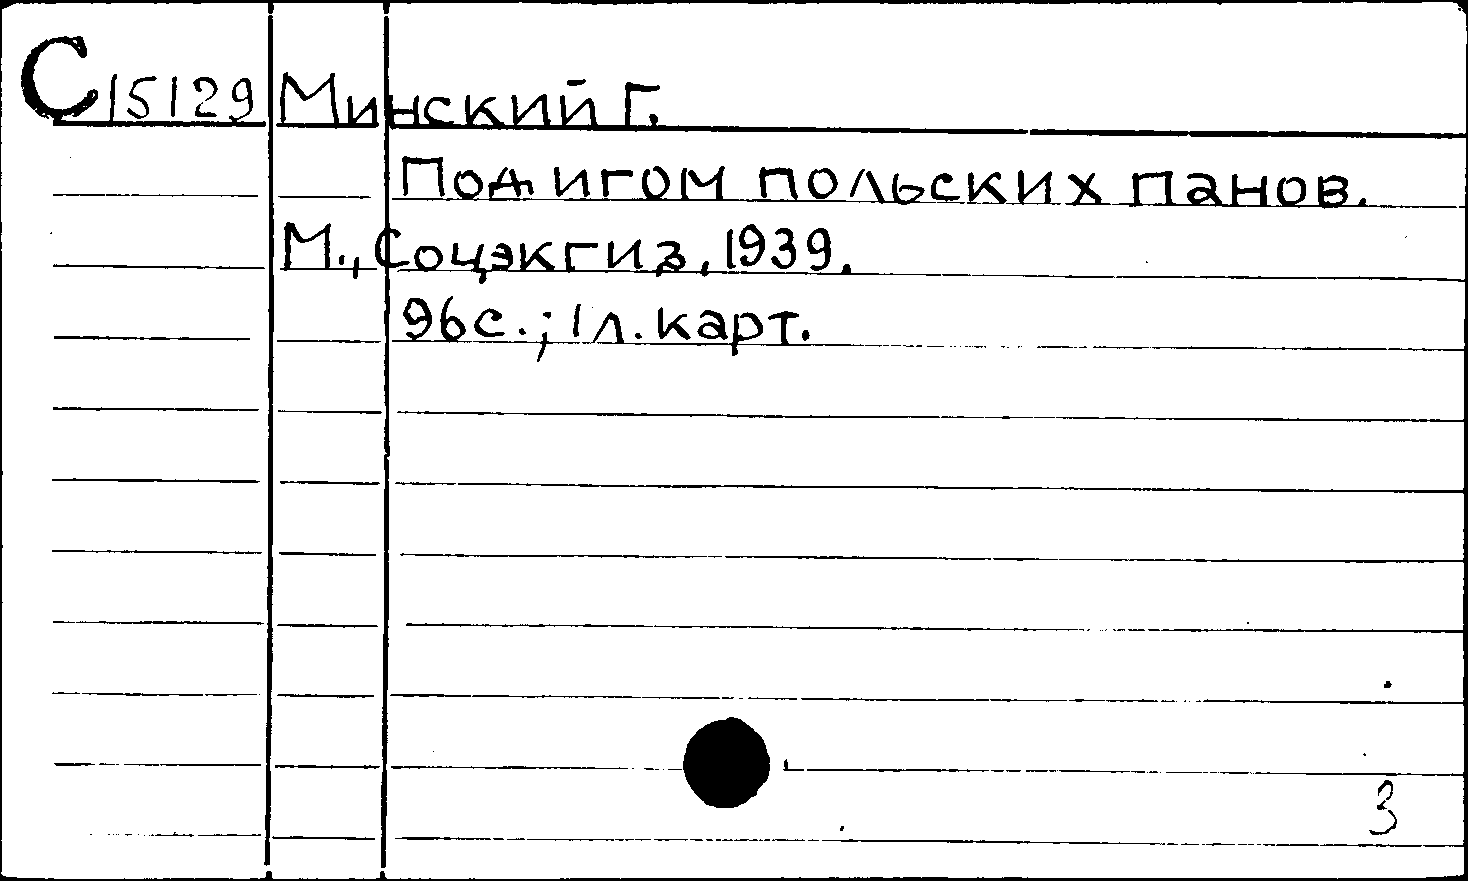 С 15129 Минский Г.
Под игом польских панов.
М., Соцэкгиз, 1939.
96с.; 1 л. карт.
3